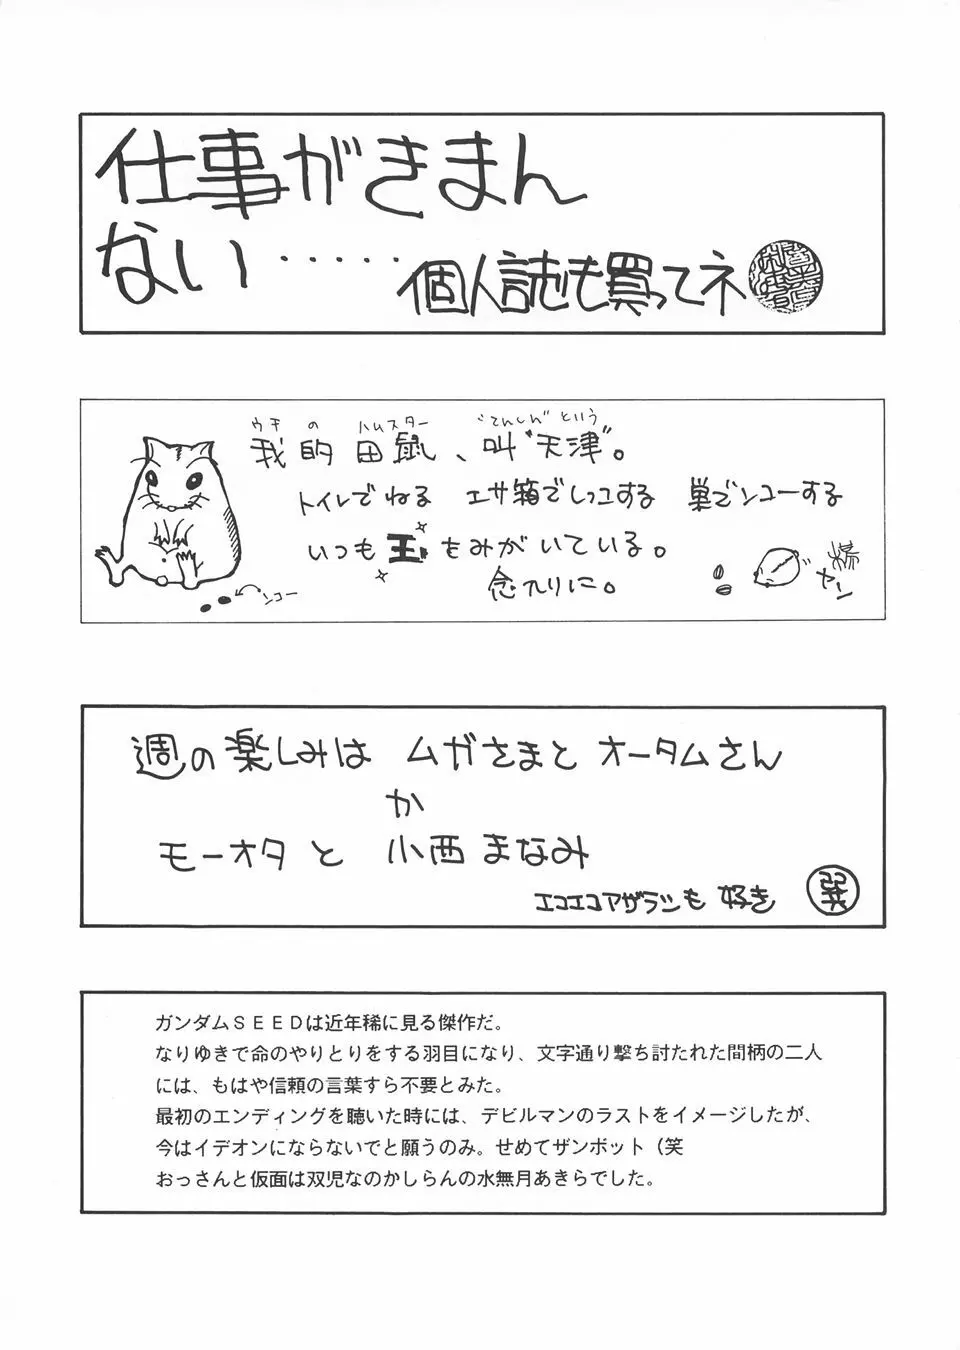 仕事がきまん
ない・・・・・個人誌も買ってネ
ウチ の ハムスター “てんしん”という
我的田鼠、叫“天津”。
トイレでねる エサ箱でしっコする 巣でンコーする
いつも玉をみがいている。
念入りに。
ンコー
ヤーン
週の楽しみは ムガさまと オータムさん
か
モーオタ と 小西 まなみ
エコエコアザラシも 好き
巽
ガンダムSEEDは近年稀に見る傑作だ。
なりゆきで命のやりとりをする羽目になり、文字通り撃ち討たれた間柄の二人
には、もはや信頼の言葉すら不要とみた。
最初のエンディングを聴いた時には、デビルマンのラストをイメージしたが、
今はイデオンにならないでと願うのみ。せめてザンボット（笑
おっさんと仮面は双児なのかしらんの水無月あきらでした。